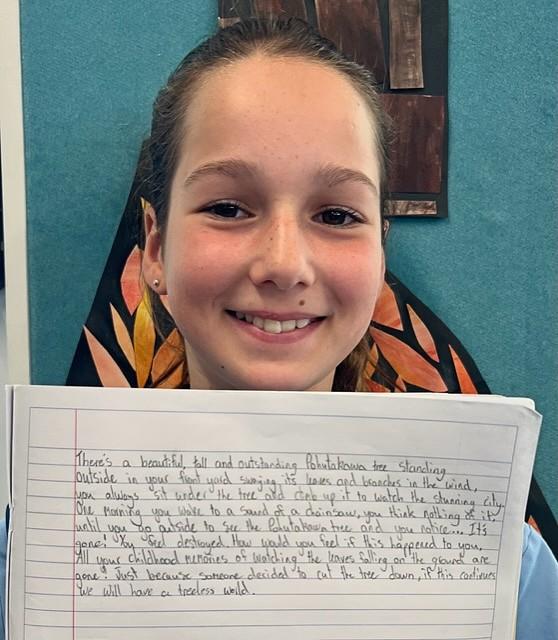 There's a beautiful, tall and outstanding Pohutakawa tree standing
outside in your front yard swinging its leaves and branches in the wind,
you always sit under the tree and climb up it to watch the stunning city.
One morning you wake to a sound of a chainsaw, you think nothing of it,
until you go outside to see the Pohutakawa tree and you notice... It's
gone! You feel destroyed. How would you feel if this happened to you.
All your childhood memories of watching the leaves falling on the ground are
gone! Just because someone decided to cut the tree down, if this continues
we will have a treeless world.